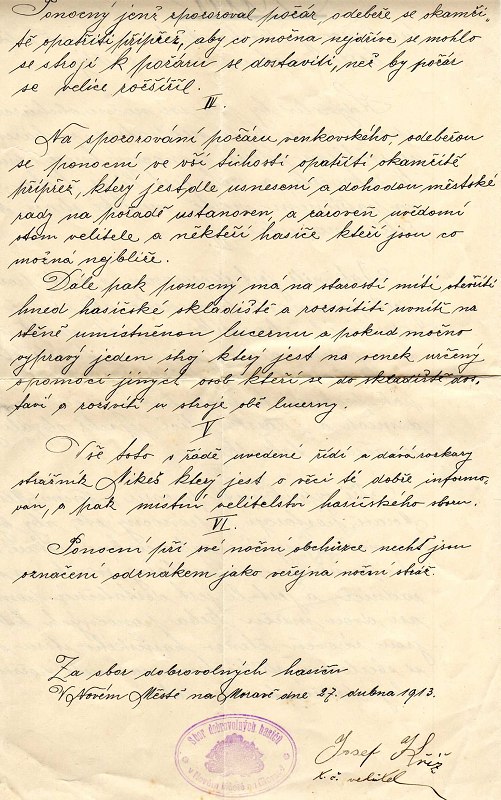 Ponocný jenž zpozoroval požár odebéře se okamži-
tě opatřiti přípřež, aby co možna nejdříve se mohlo
se stroji k požáru se dostaviti, než by požár
se velice rozšířil.
IV.
Na spozorování požáru venkovského, odeběrou
se ponocní ve vší tichosti opatřiti okamžitě
přípřež, který jest dle usnesení a dohodou městské
rady na pořadě ustanoven, a zároveň uvědomí
o tom velitele a některé hasiče kteří jsou co
možná nejblíže.
Dále pak ponocný má na starosti míti otevříti
hned hasičské skladiště a rozsvítiti uvnitř na
stěně umístněnou lucernu a pokud možno
vypraví jeden stroj který jest na venek určený
s pomocí jiných osob kteří se do skladiště dos-
taví a rozsvítí u stroje obě lucerny.
V
Vše toto v řádě uvedené řídí a dává rozkazy
strážník Nikeš který jest o věci té dobře informo-
ván, a pak místní velitelství hasičského sboru.
VI.
Ponocní při své noční obchůzce nechť jsou
označeni odznakem jako veřejná noční stráž.
Za sbor dobrovolných hasičů
V Novém Městě na Moravě dne 27. dubna 1913.
Sbor dobrovolných hasičů
v Novém Městě na Moravě
Josef Kříž
t. č. velitel